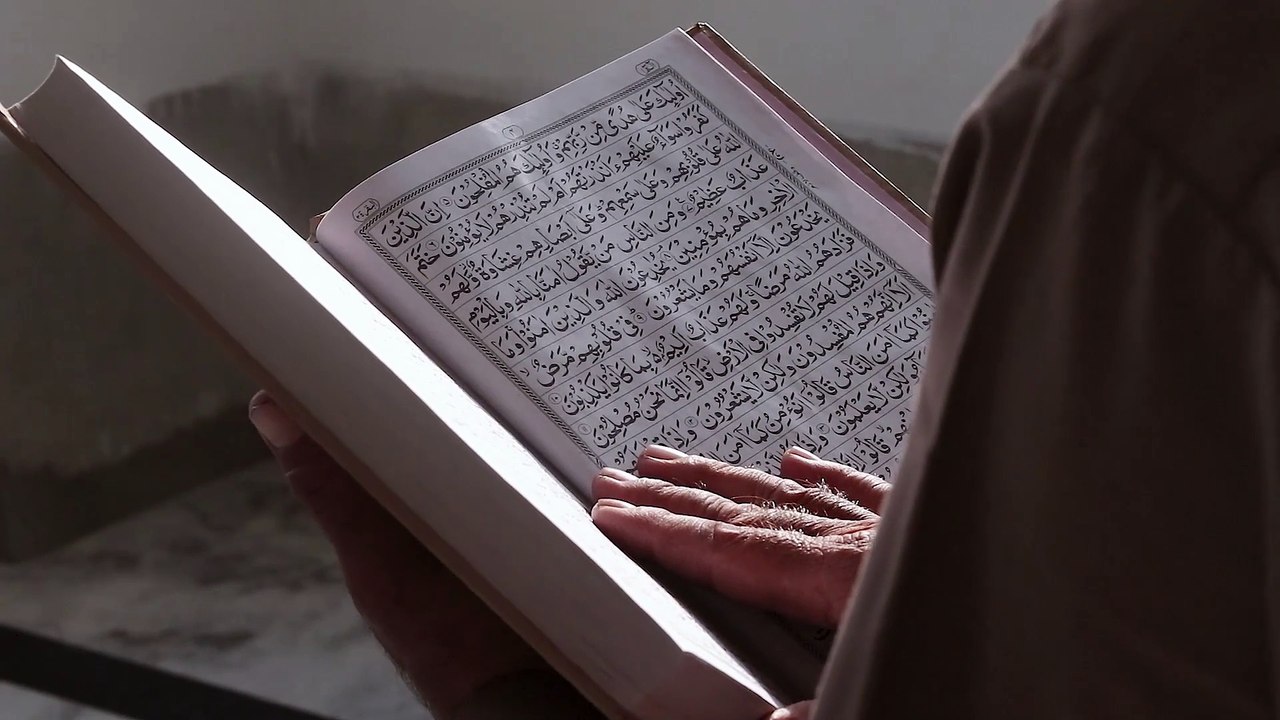 البقرة ٢
أُولَٰئِكَ عَلَىٰ هُدًى مِّن رَّبِّهِمْ وَأُولَٰئِكَ هُمُ الْمُفْلِحُونَ ۝ إِنَّ الَّذِينَ
كَفَرُوا سَوَاءٌ عَلَيْهِمْ ءَأَنذَرْتَهُمْ أَمْ لَمْ تُنذِرْهُمْ لَا يُؤْمِنُونَ ۝ خَتَمَ
اللَّهُ عَلَىٰ قُلُوبِهِمْ وَعَلَىٰ سَمْعِهِمْ وَعَلَىٰ أَبْصَارِهِمْ غِشَاوَةٌ وَلَهُمْ
عَذَابٌ عَظِيمٌ ۝ وَمِنَ النَّاسِ مَن يَقُولُ آمَنَّا بِاللَّهِ وَبِالْيَوْمِ
الْآخِرِ وَمَا هُم بِمُؤْمِنِينَ ۝ يُخَادِعُونَ اللَّهَ وَالَّذِينَ آمَنُوا وَمَا
يَخْدَعُونَ إِلَّا أَنفُسَهُمْ وَمَا يَشْعُرُونَ ۝ فِي قُلُوبِهِم مَّرَضٌ
فَزَادَهُمُ اللَّهُ مَرَضًا وَلَهُمْ عَذَابٌ أَلِيمٌ بِمَا كَانُوا يَكْذِبُونَ ۝
وَإِذَا قِيلَ لَهُمْ لَا تُفْسِدُوا فِي الْأَرْضِ قَالُوا إِنَّمَا نَحْنُ مُصْلِحُونَ ۝
أَلَا إِنَّهُمْ هُمُ الْمُفْسِدُونَ وَلَٰكِن لَّا يَشْعُرُونَ ۝ وَإِذَا
كَمَا آمَنَ النَّاسُ قَالُوا أَنُؤْمِنُ كَمَا آمَنَ
وَلَٰكِن لَّا يَعْلَمُونَ ۝ وَإِذَا
قَالُوا